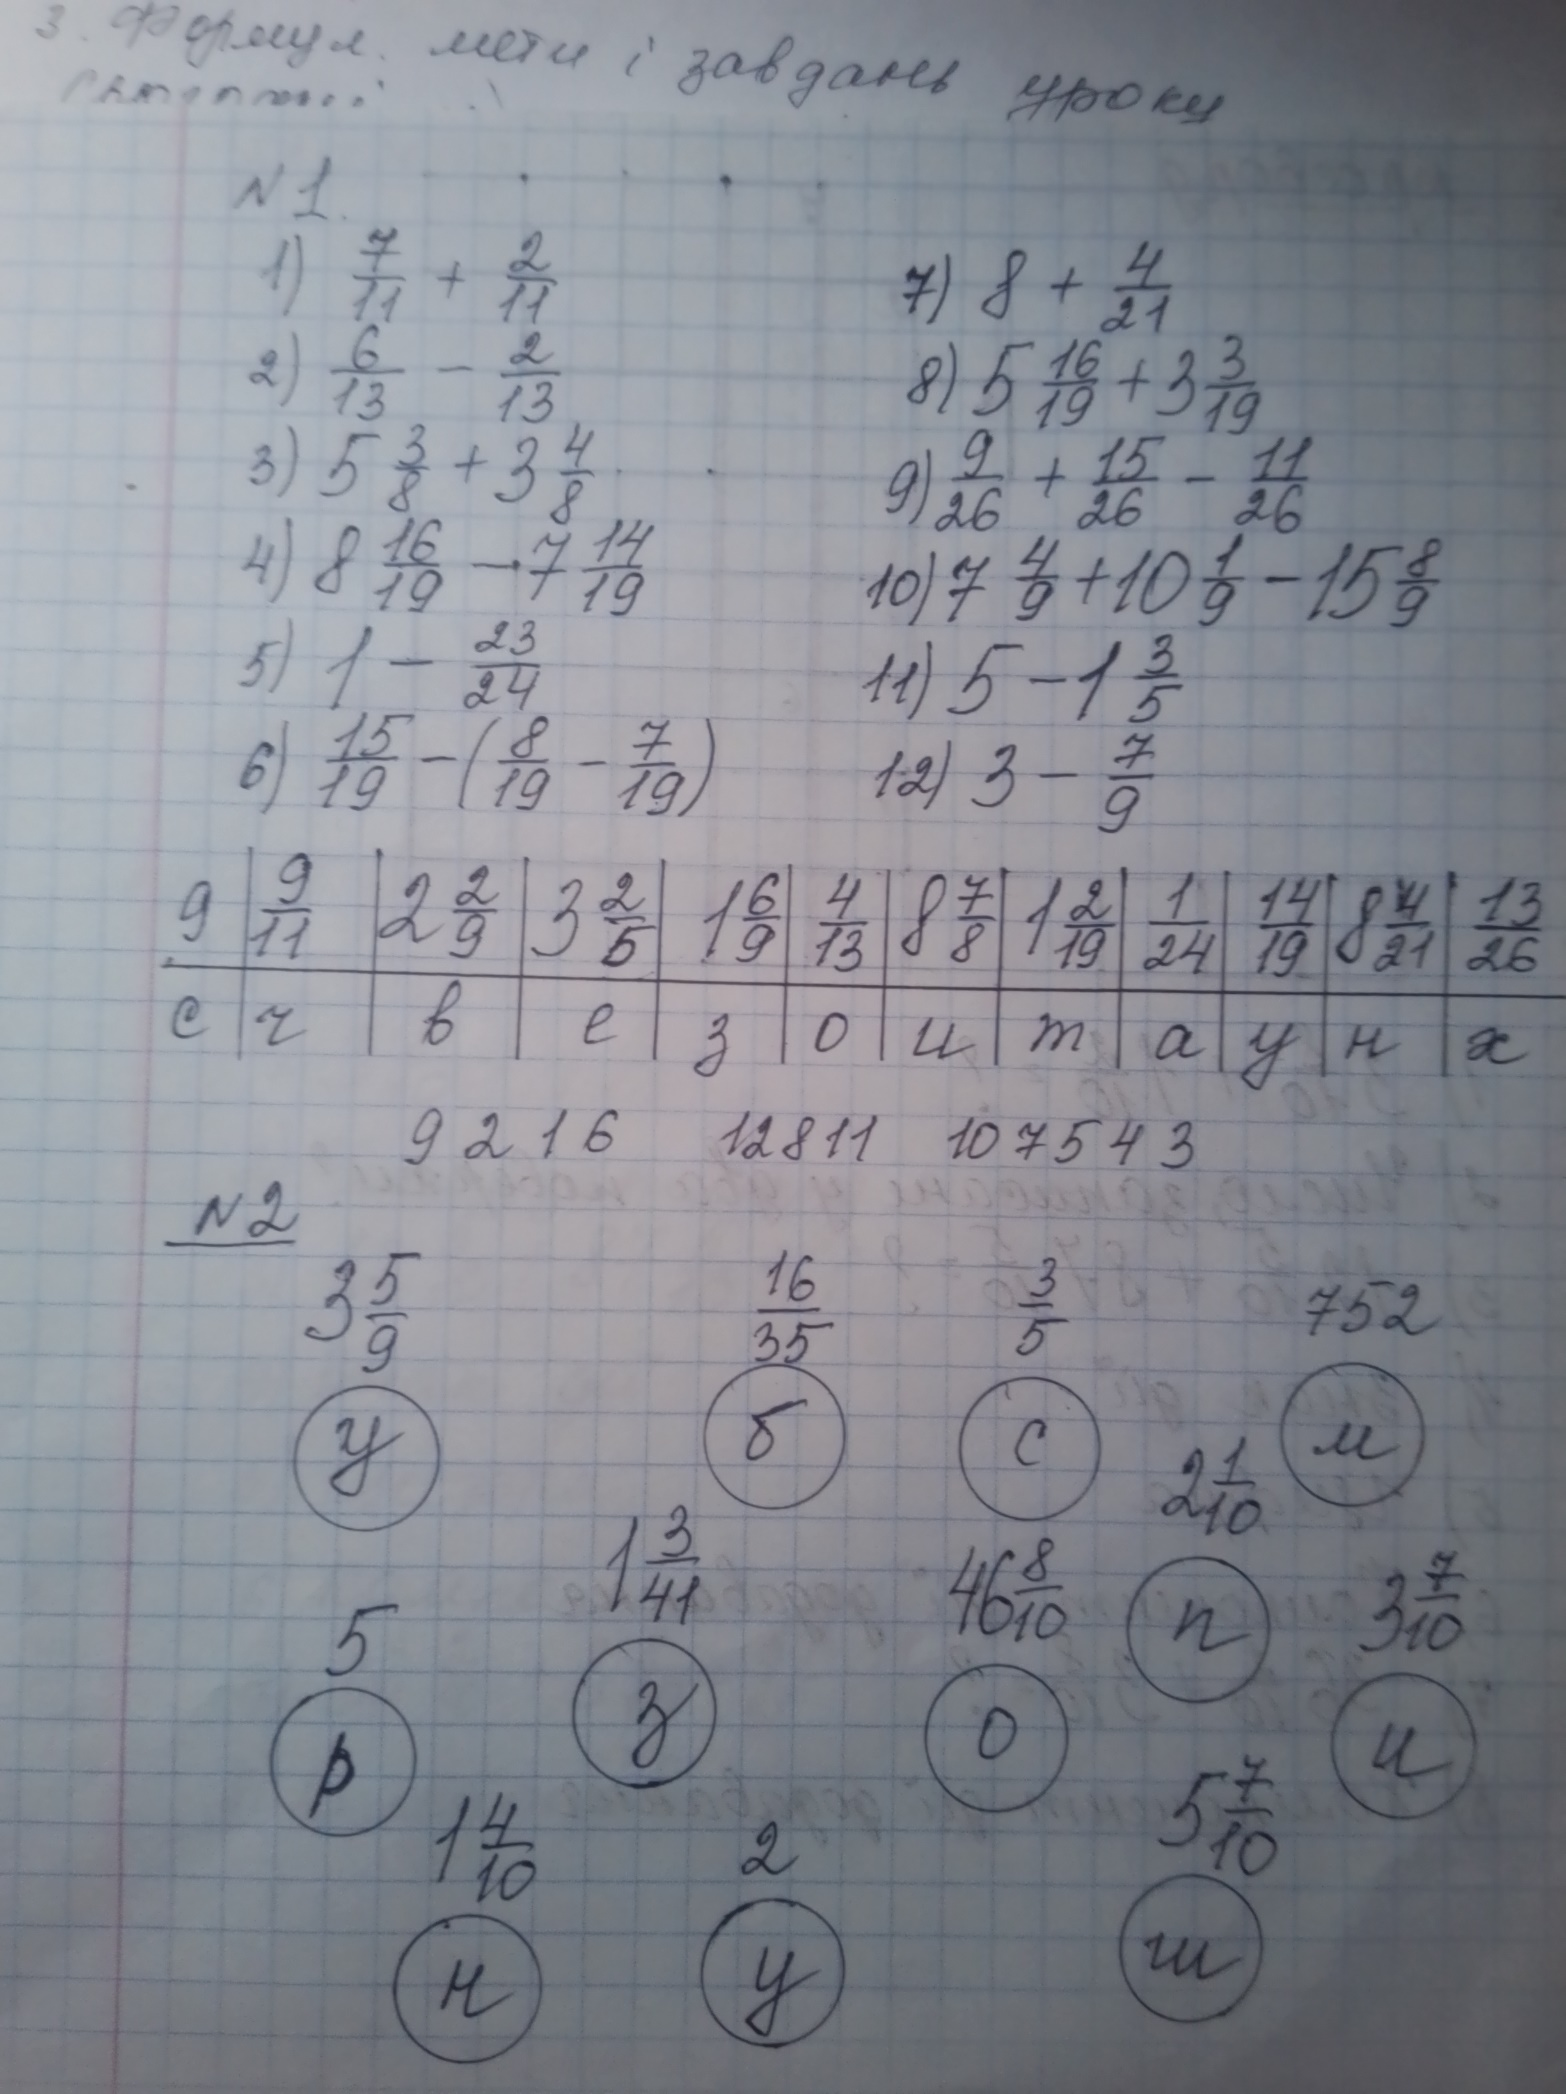 3. Формул. мети і завдань уроку
№1.
1) 7/11 + 2/11
2) 6/13 - 2/13
3) 5 3/8 + 3 4/8
4) 8 16/19 - 7 14/19
5) 1 - 23/24
6) 15/19 - (8/19 - 7/19)
7) 8 + 4/21
8) 5 16/19 + 3 3/19
9) 9/26 + 15/26 - 11/26
10) 7 4/9 + 10 1/9 - 15 8/9
11) 5 - 1 3/5
12) 3 - 7/9
9 | 9/11 | 2 2/9 | 3 2/5 | 1 6/9 | 4/13 | 8 7/8 | 1 2/19 | 1/24 | 14/19 | 8 4/21 | 13/26
с | ч | в | е | з | о | и | т | а | у | н | х
9 2 1 6 12 8 11 10 7 5 4 3
№2
3 5/9 16/35 3/5 752
у б с м
1 3/41 46 8/10 2 1/10 3 7/10
5
з о п и
р
1 4/10 2 5 7/10
н у ш